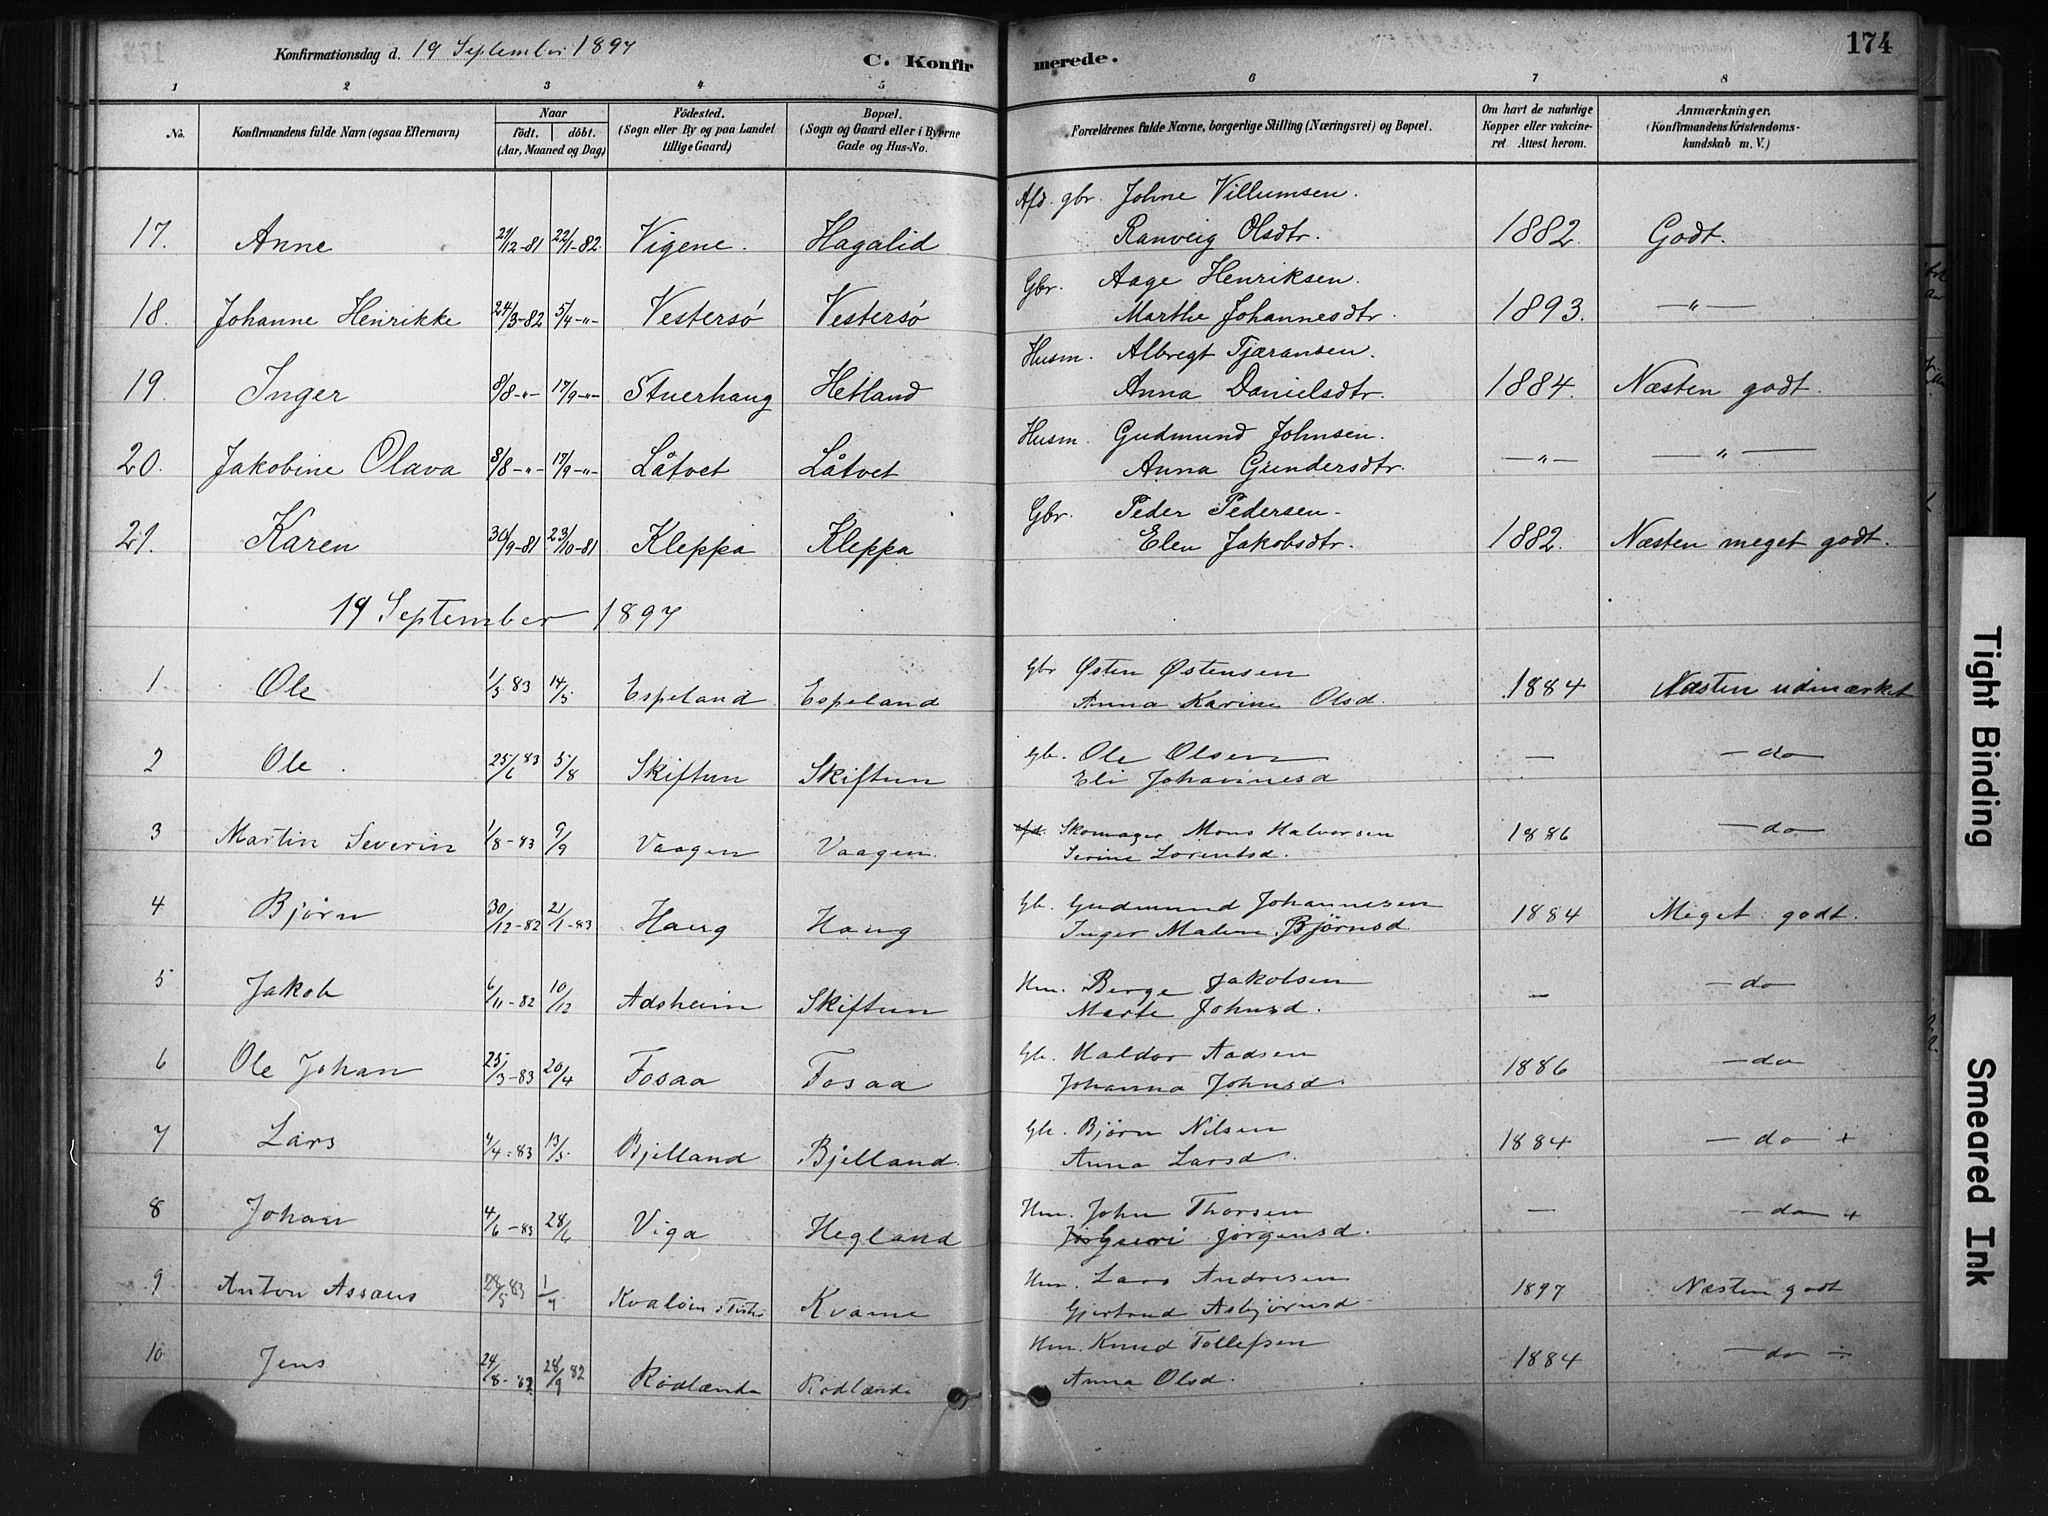 Konfirmationsdag d. 19 September 1897
C. Konfirmerede.
174
1 2 3 4 5 6 7 8
No.
Konfirmandens fulde Navn (ogsaa Efternavn)
Naar
födt. döbt.
(Aar, Maaned og Dag)
Födested.
(Sogn eller By og paa Landet
tillige Gaard)
Bopæl.
(Sogn og Gaard eller i Byerne
Gade og Hus-No.
Forældrenes fulde Navne, borgerlige Stilling (Næringsvei) og Bopæl.
Om havt de naturlige
Kopper eller vakcine-
ret. Attest herom.
Anmærkninger.
(Konfirmandens Kristendoms-
kundskab m. V.)
Afd. gbr. Johne Villumsen.
17. Anne 27/12-81 22/1-82 Vigene. Hagalid Ranveig Olsdtr. 1882. Godt.
Gbr. Aage Henriksen.
18. Johanne Henrikke 24/3-82 5/4-"- Vestersø Vestersø Marthe Johannesdtr. 1893. —"—
Husm. Albregt Tjæransen.
19. Inger 8/8-"- 17/9-"- Stuerhaug Hetland Anna Danielsdtr. 1884. Næsten godt.
Husm. Gudmund Johnsen.
20. Jakobine Olava 8/8-"- 17/9-"- Låtvet Låtvet Anna Gundersdtr. —"— —"—
Gbr. Peder Pedersen.
21. Karen 30/9-81 23/10-81 Kleppa Kleppa Elen Jakobsdtr. 1882. Næsten meget godt.
19 September 1897
Gbr Østen Østensen
1 Ole 1/5 83 14/5 Espeland Espeland Anna Karine Olsd. 1884 Næsten udmærket
Gb. Ole Olsen
2 Ole. 25/6 83 5/8 Skiftun Skiftun Eli Johannesd — — do
afd. Skomager Mons Halvorsen
3 Martin Severin 1/8-83 9/9 Vaagen Vaagen. Serine Lorentsd. 1886 — do
Gb. Gudmund Johannesen
4 Bjørn 30/12-82 21/1-83 Haug Haug Inger Malene Bjørnsd. 1884 Meget godt.
Hm. Berge Jakobsen
5 Jakob 6/11-82 10/12 Adsheim Skiftun Marte Johnsd. — — do
Gb. Haldor Aadsen
6 Ole Johan 25/3-83 20/4 Fosaa Fosaa Johanna Johnsd. 1886 — do
Gb. Bjørn Nilsen
7 Lars 4/4-83 13/5 Bjelland Bjelland. Anna Larsd. 1884 — do +
Hm. John Thorsen
8 Johan 4/6-83 28/6 Viga Hegland Guri Jørgensd. — — do +
Hm. Lars Andresen
9 Anton Assans 28/5 83 1/7 Kvaløen i Kvame Gjertrud Asbjørnsd 1897 Næsten godt
Hm. Knud Tollefsen
10 Jens 24/8- 28/9 82 Rødlænde Rødlænde Anna Olsd. 1884 — do ÷
Tight Binding
Smeared Ink